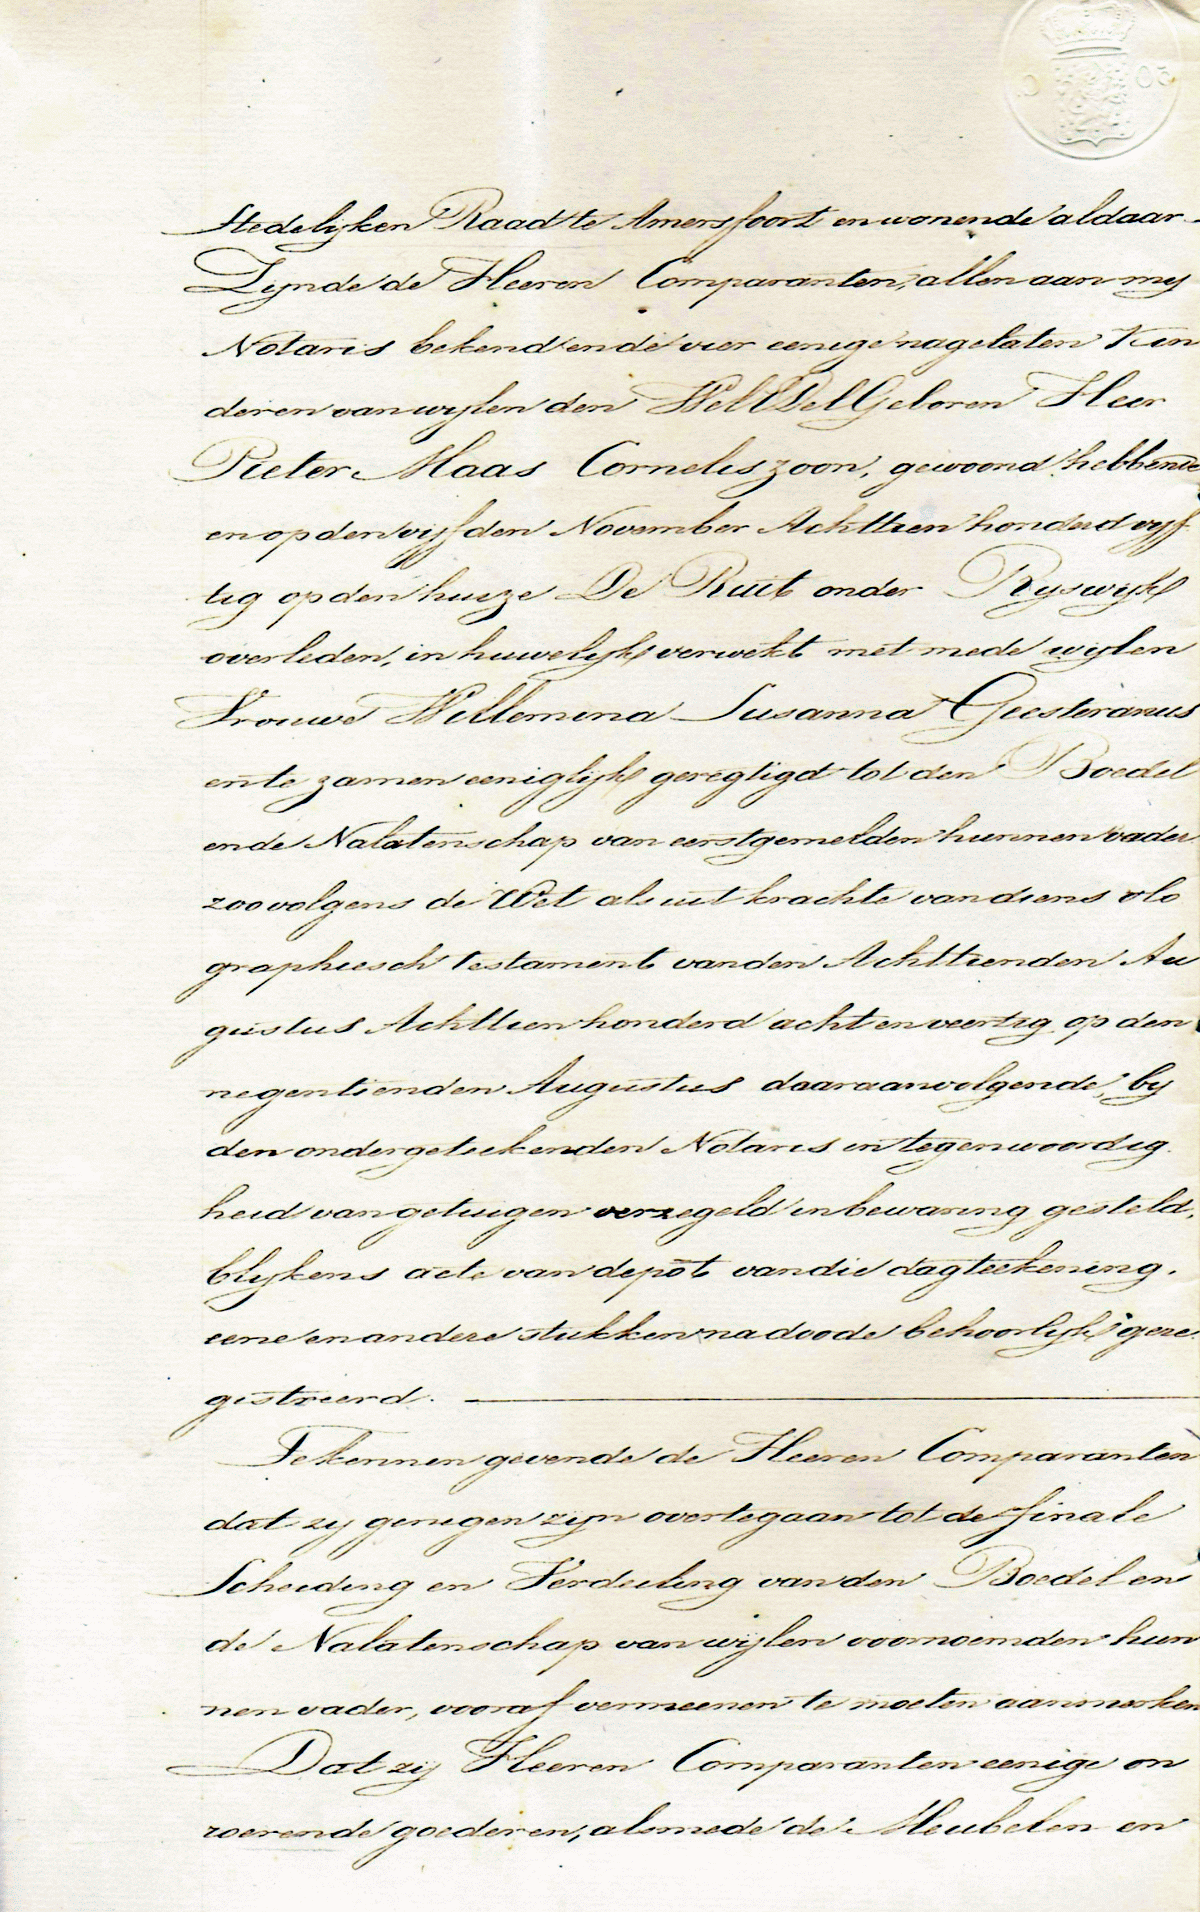 Stedelijken Raad te Amersfoort en wonende aldaar
Zijnde de Heeren Comparanten, allen aan mij
Notaris bekend en de vier eenige nagelaten Kin
deren van wijlen den WelEdelGeboren Heer
Pieter Maas Corneliszoon, gewoond hebbende
en op den vijfden November Achttien honderd vijf
tig op den huize De Ruit onder Ryswijk
overleden, in huwelijk verwekt met mede wijlen
Vrouwe Willemina Susanna Geesteranus
en te zamen eeniglijk geregtigd tot den Boedel
en de Nalatenschap van eerstgemelden hunnen vader
zoo volgens de Wet als uit krachte van diens olo
graphiesch testament van den Achttienden Au
gustus Achttien honderd acht en veertig op den
negentienden Augustus daaraanvolgende, by
den ondergeteekenden Notaris in tegenwoordig
heid van getuigen verzegeld in bewaring gesteld,
blijkens acte van depôt van die dagteekening.
eene en andere stukken na doode behoorlijk gere
gistreerd.
Te kennen gevende de Heeren Comparanten
dat zij genegen zijn over te gaan tot de finale
Scheiding en Verdeeling van den Boedel en
de Nalatenschap van wijlen voornoemden hun
nen vader, vooraf vermeenen te moeten aanmerken
Dat zij Heeren Comparanten eenige on
roerende goederen, alsmede de Meubelen en